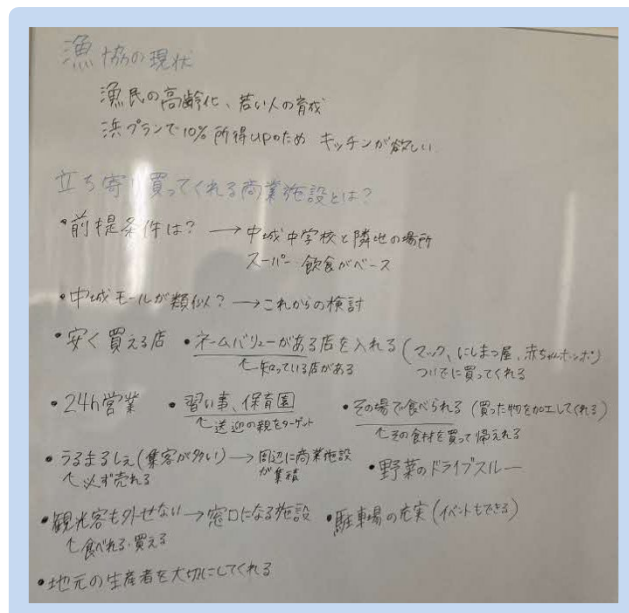 漁協の現状
漁民の高齢化、若い人の育成
浜プランで10%所得UPのため キッチンが欲しい
立ち寄り買ってくれる商業施設とは?
•前提条件は? → 中城中学校と隣地の場所
スーパー 飲食がベース
•中城モールが類似? → これからの検討
•安く買える店 •ネームバリューがある店を入れる (マック、にしまつ屋、赤ちゃんホンポ)
↑知っている店がある ついでに買ってくれる
•24h営業 •習い事、保育園 •その場で食べられる (買った物を加工してくれる)
↑送迎の親をターゲット ↑その食材を買って帰えれる
•うるまるしぇ(集客が多い) → 周辺に商業施設が集積 •野菜のドライブスルー
↑必ず売れる
•観光客も外せない → 窓口になる施設 •駐車場の充実 (イベントもできる)
↑食べれる・買える
•地元の生産者を大切にしてくれる